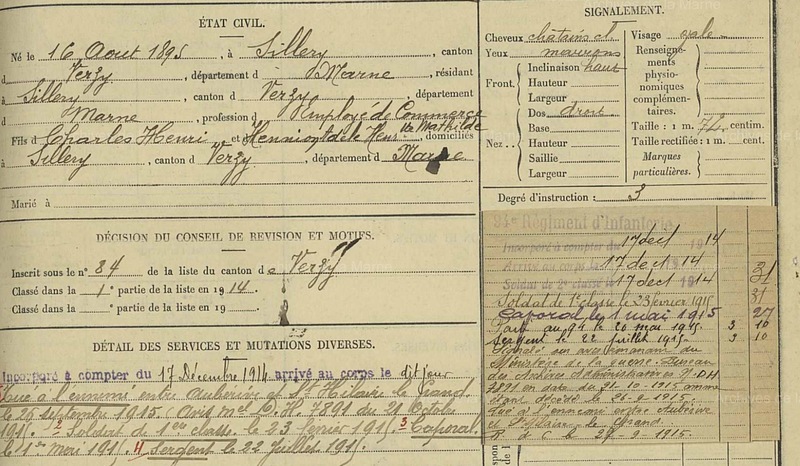 ÉTAT CIVIL.
Né le 16 Aout 1895, à Sillery, canton
d Verzy, département d Marne, résidant
à Sillery, canton d Verzy, département
d Marne, profession d Employé de Commerce
Fils d Charles Henri et Mathilde domiciliés
à Sillery, canton d Verzy, département d Marne
Marié à
DÉCISION DU CONSEIL DE REVISION ET MOTIFS.
Inscrit sous le n° 84 de la liste du canton de Verzy
Classé dans la 1e partie de la liste en 1914.
Classé dans la partie de la liste en 19
DÉTAIL DES SERVICES ET MUTATIONS DIVERSES.
Incorporé à compter du 17 Décembre 1914 arrivé au corps le dit jour
Tué à l'ennemi entre Auberive et St Hilaire le Grand
le 26 septembre 1915. Avis mel 7891 du 21 Octobre
1915. 2 Soldat de 1ère classe le 23 février 1915 3 Caporal
le 1er mai 1915 4 Sergent le 22 Juillet 1915.
SIGNALEMENT.
Cheveux chatains cl
Yeux marrons
Front. Inclinaison haut
Hauteur
Largeur
Nez.. Dos droit.
Base
Hauteur
Saillie
Largeur
Visage ovale
Renseigne-
ments
physio-
nomiques
complémen-
taires.
Taille : 1 m. 72 centim.
Taille rectifiée : 1 m. cent.
Marques
particulières.
Degré d'instruction : 3
94e Régiment d'Infanterie
Incorporé à compter du 17 dect 1914
Arrivé au corps le 17 dect 14
Soldat de 2e classe le 17 dect 1914
Soldat de 1e classe le 23 février 1915
Caporal le 1 mai 1915
au 94 le 20 mai 1915. 3 10
Sergent le 22 juillet 1915 3 10
Ministère de la guerre. Bureau
des Archives Administratives
7891 en date du 21-10-1915 comme
étant décédé le 26-9-1915.
Tué à l'ennemi entre Auberive
et St Hilaire le Grand